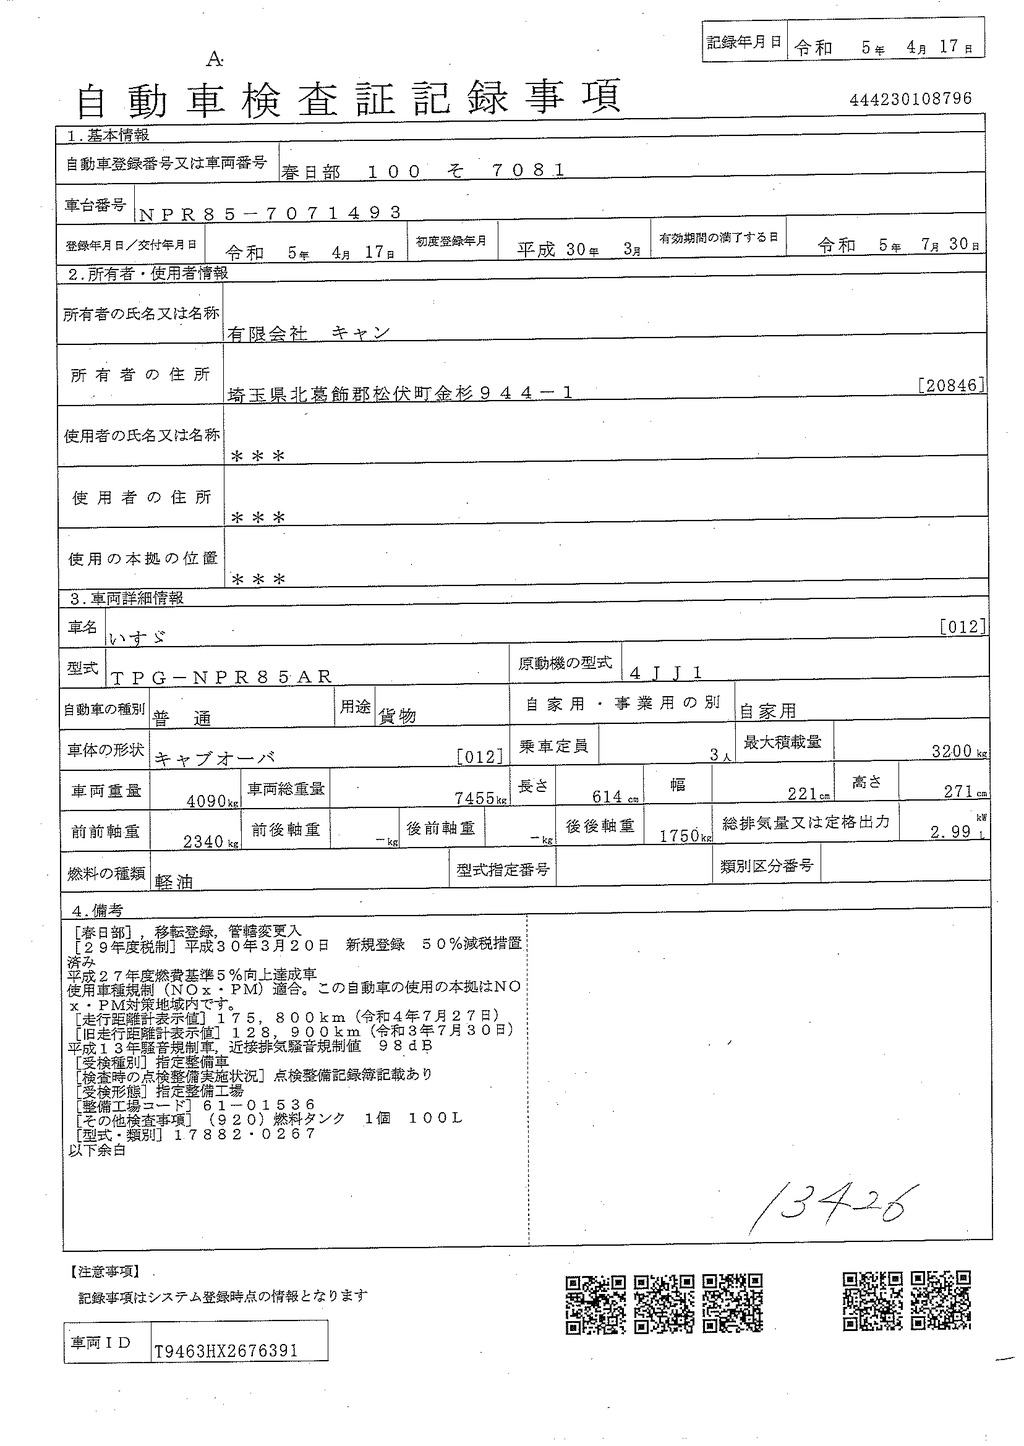 記録年月日 令和 5年 4月 17日
A
自動車検査証記録事項
444230108796
1.基本情報
自動車登録番号又は車両番号 春日部 100 そ 7081
車台番号 NPR85-7071493
登録年月日/交付年月日 令和 5年 4月 17日 初度登録年月 平成 30年 3月 有効期間の満了する日 令和 5年 7月 30日
2.所有者・使用者情報
所有者の氏名又は名称 有限会社 キャン
所有者の住所 埼玉県北葛飾郡松伏町金杉944-1 [20846]
使用者の氏名又は名称 ***
使用者の住所 ***
使用の本拠の位置 ***
3.車両詳細情報
車名 いすゞ [012]
型式 TPG-NPR85AR 原動機の型式 4JJ1
自動車の種別 普通 用途 貨物 自家用・事業用の別 自家用
車体の形状 キャブオーバ [012] 乗車定員 3人 最大積載量 3200kg
車両重量 4090kg 車両総重量 7455kg 長さ 614cm 幅 221cm 高さ 271cm
前前軸重 2340kg 前後軸重 -kg 後前軸重 -kg 後後軸重 1750kg 総排気量又は定格出力 2.99 kW L
燃料の種類 軽油 型式指定番号 類別区分番号
4.備考
[春日部],移転登録,管轄変更入
[29年度税制]平成30年3月20日 新規登録 50%減税措置
済み
平成27年度燃費基準5%向上達成車
使用車種規制(NOx・PM)適合。この自動車の使用の本拠はNO
x・PM対策地域内です。
[走行距離計表示値]175,800km(令和4年7月27日)
[旧走行距離計表示値]128,900km(令和3年7月30日)
平成13年騒音規制車,近接排気騒音規制値 98dB
[受検種別]指定整備車
[検査時の点検整備実施状況]点検整備記録簿記載あり
[受検形態]指定整備工場
[整備工場コード]61-01536
[その他検査事項](920)燃料タンク 1個 100L
[型式・類別]17882・0267
以下余白
13426
【注意事項】
記録事項はシステム登録時点の情報となります
車両ID T9463HX2676391